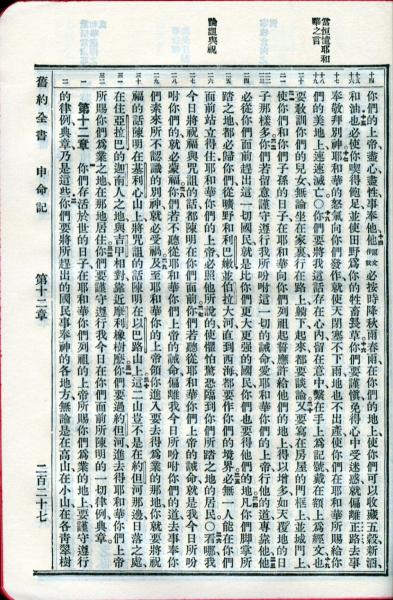 當恒遵耶和
華之言
論詛與祝
你們的上帝盡心盡性事奉他他必按時降秋雨春雨在你們的地上使你們可以收藏五穀新酒
和油也必使你喫得飽足並使田野爲你的牲畜長草你們要謹愼免得心中受迷惑就偏離正路去事
奉敬拜別神耶和華的怒氣向你們發作就使天閉塞不下雨地也不出產使你們在耶和華所賜給你
們的美地上速速滅亡○你們要將我這話存在心內留在意中繫在手上爲記號戴在額上爲經文也
要教訓你們的兒女無論坐在家裏行在路上躺下起來都要談論又要寫在房屋的門框上並城門上
使你們和你們子孫的日子在耶和華向你們列祖起誓應許給他們的地上得以增多如天覆地的日
子那樣多你們若留意謹守遵行我所吩咐這一切的誡命愛耶和華你們的上帝行他的道專靠他他
必從你們面前趕出這一切國民就是比你們更大更强的國民你們也要得他們的地凡你們腳掌所
踏之地都必歸你們從曠野和利巴嫩並伯拉大河直到西海都要作你們的境界必無一人能在你們
面前站立得住耶和華你們的上帝必照他所說的使懼怕驚恐臨到你們所踏之地的居民○看哪我
今日將祝福與咒詛的話都陳明在你們面前你們若聽從耶和華你們上帝的誡命就是我今日所吩
咐你們的就必蒙福你們若不聽從耶和華你們上帝的誡命偏離我今日所吩咐你們的道去事奉你
們素來所不認識的別神就必受禍及至耶和華你的上帝領你進入要去得爲業的那地你就要將祝
福的話陳明在基利心山上將咒詛的話陳明在以巴路山上這二山豈不是在約但河那邊日落之處
在住亞拉巴的迦南人之地與吉甲相對靠近摩利橡樹麼你們要過約但河進去得耶和華你們上帝
所賜你們爲業之地在那地居住你們要謹守遵行我今日在你們面前所陳明的一切律例典章
第十二章 你們存活於世的日子在耶和華你們列祖的上帝所賜你們爲業的地上要謹守遵行
的律例典章乃是這些你們要將所趕出的國民事奉神的各地方無論是在高山在小山在各靑翠樹
舊約全書 申命記 第十二章 二百二十七